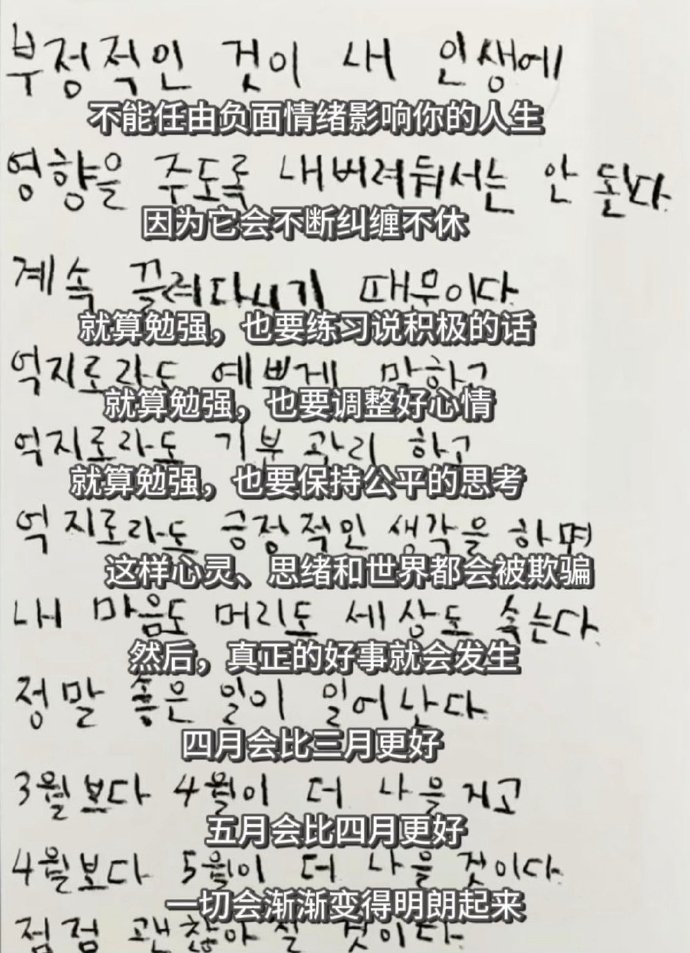 부정적인 것이 내 인생에
不能任由负面情绪影响你的人生
영향을 주도록 내버려둬서는 안 된다
因为它会不断纠缠不休
계속 끌려다니기 때문이다
就算勉强，也要练习说积极的话
억지로라도 예쁘게 말하고
就算勉强，也要调整好心情
억지로라도 기분 관리 하고
就算勉强，也要保持公平的思考
억지로라도 긍정적인 생각을 하면
这样心灵、思绪和世界都会被欺骗
내 마음도 머리도 세상도 속는다
然后，真正的好事就会发生
정말 좋은 일이 일어난다
四月会比三月更好
3월보다 4월이 더 나을거고
五月会比四月更好
4월보다 5월이 더 나을 것이다
一切会渐渐变得明朗起来
점점 괜찮아질 것이다